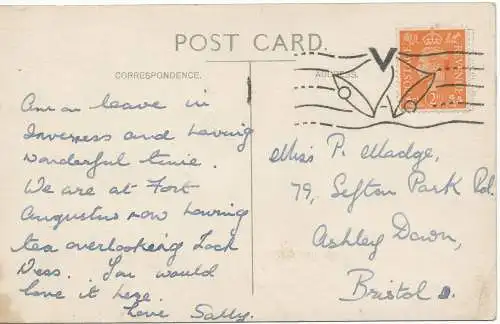 POST CARD.
CORRESPONDENCE.
Am on leave in
Inverness and having
wonderful time.
We are at Fort
Augustus now having
tea overlooking Loch
Ness. You would
love it here.
Love Sally.
ADDRESS.
Miss P. Madge,
79, Sefton Park Rd.
Ashley Down,
Bristol
V
REVENUE